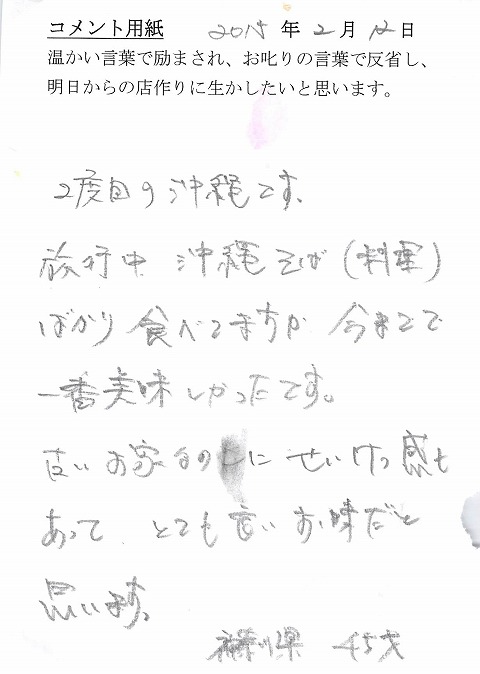 コメント用紙 2015 年 2 月 12 日
温かい言葉で励まされ、お叱りの言葉で反省し、
明日からの店作りに生かしたいと思います。
2度目の沖縄です、
旅行中 沖縄そば(料理)
ばかり食べてますが 今までで
一番美味しかったです。
古いお家なのに せいけつ感も
あって とても良いお味だと
思います。
県 45才